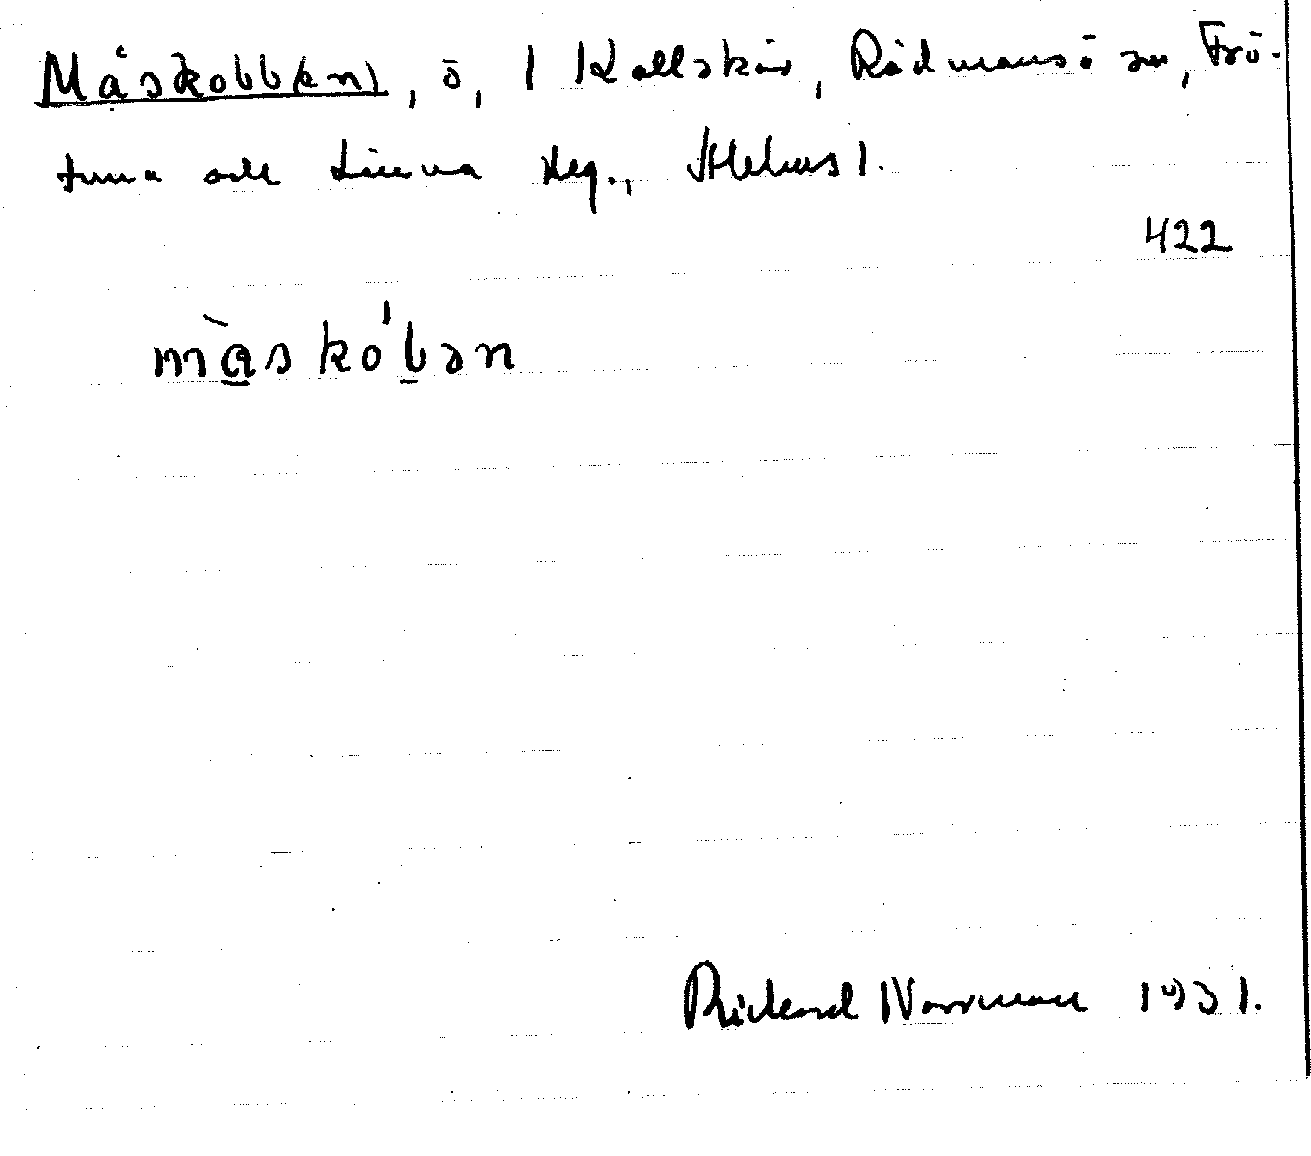 Måskobb(en), ö, 1 Kallskär, Rådmansö sn, Frö-
tuna och Länna skg., Sthlms l.
422
màskó'bən
Rickard Norrman 1931.